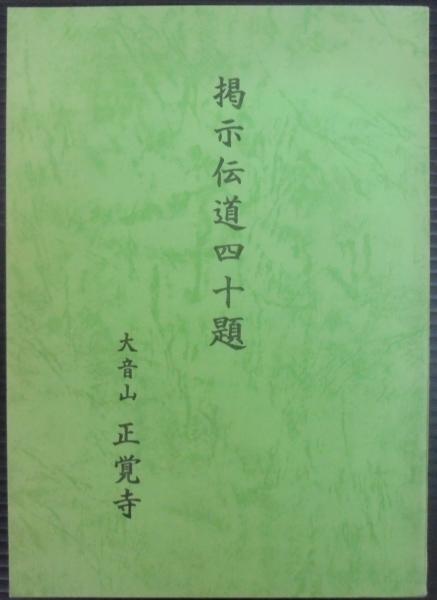 掲示伝道四十題
大音山 正覚寺